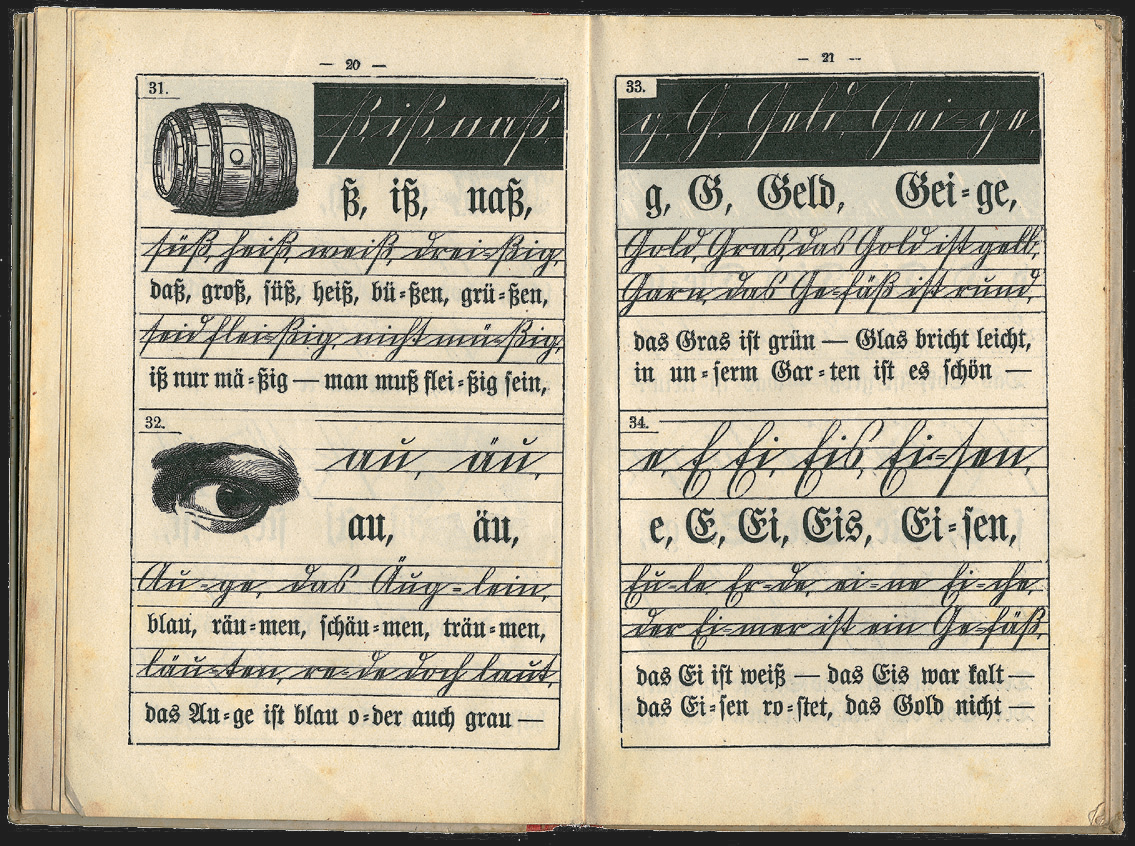 — 20 —
31.
ß iß naß
ß, iß, naß,
süß, heiß, weiß, drei=ßig,
daß, groß, süß, heiß, bü=ßen, grü=ßen,
seid flei=ßig, nicht mü=ßig,
iß nur mä=ßig — man muß flei=ßig sein,
32.
au, äu,
au, äu,
Au=ge, das Äug=lein,
blau, räu=men, schäu=men, träu=men,
läu=ten, re=de doch laut,
das Au=ge ist blau o=der auch grau —
— 21 —
33.
g, G, Geld, Gei=ge,
g, G, Geld, Gei=ge,
Gold, Gras, das Gold ist gelb,
Garn, das Ge=fäß ist rund,
das Gras ist grün — Glas bricht leicht,
in un=serm Gar=ten ist es schön —
34.
e, E, Ei, Eis, Ei=sen,
e, E, Ei, Eis, Ei=sen,
Eu=le, Er=de, ei=ne Ei=che,
der Ei=mer ist ein Ge=fäß,
das Ei ist weiß — das Eis war kalt —
das Ei=sen ro=stet, das Gold nicht —